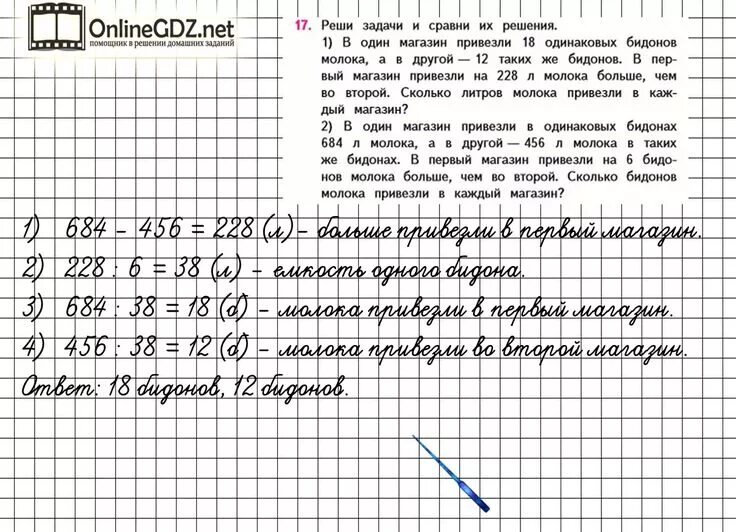 OnlineGDZ.net
помощник в решении домашних заданий
17. Реши задачи и сравни их решения.
1) В один магазин привезли 18 одинаковых бидонов
молока, а в другой — 12 таких же бидонов. В пер-
вый магазин привезли на 228 л молока больше, чем
во второй. Сколько литров молока привезли в каж-
дый магазин?
2) В один магазин привезли в одинаковых бидонах
684 л молока, а в другой — 456 л молока в таких
же бидонах. В первый магазин привезли на 6 бидо-
нов молока больше, чем во второй. Сколько бидонов
молока привезли в каждый магазин?
1) 684 - 456 = 228 (л) - больше привезли в первый магазин.
2) 228 : 6 = 38 (л) - емкость одного бидона.
3) 684 : 38 = 18 (б) - молока привезли в первый магазин.
4) 456 : 38 = 12 (б) - молока привезли во второй магазин.
Ответ: 18 бидонов, 12 бидонов.